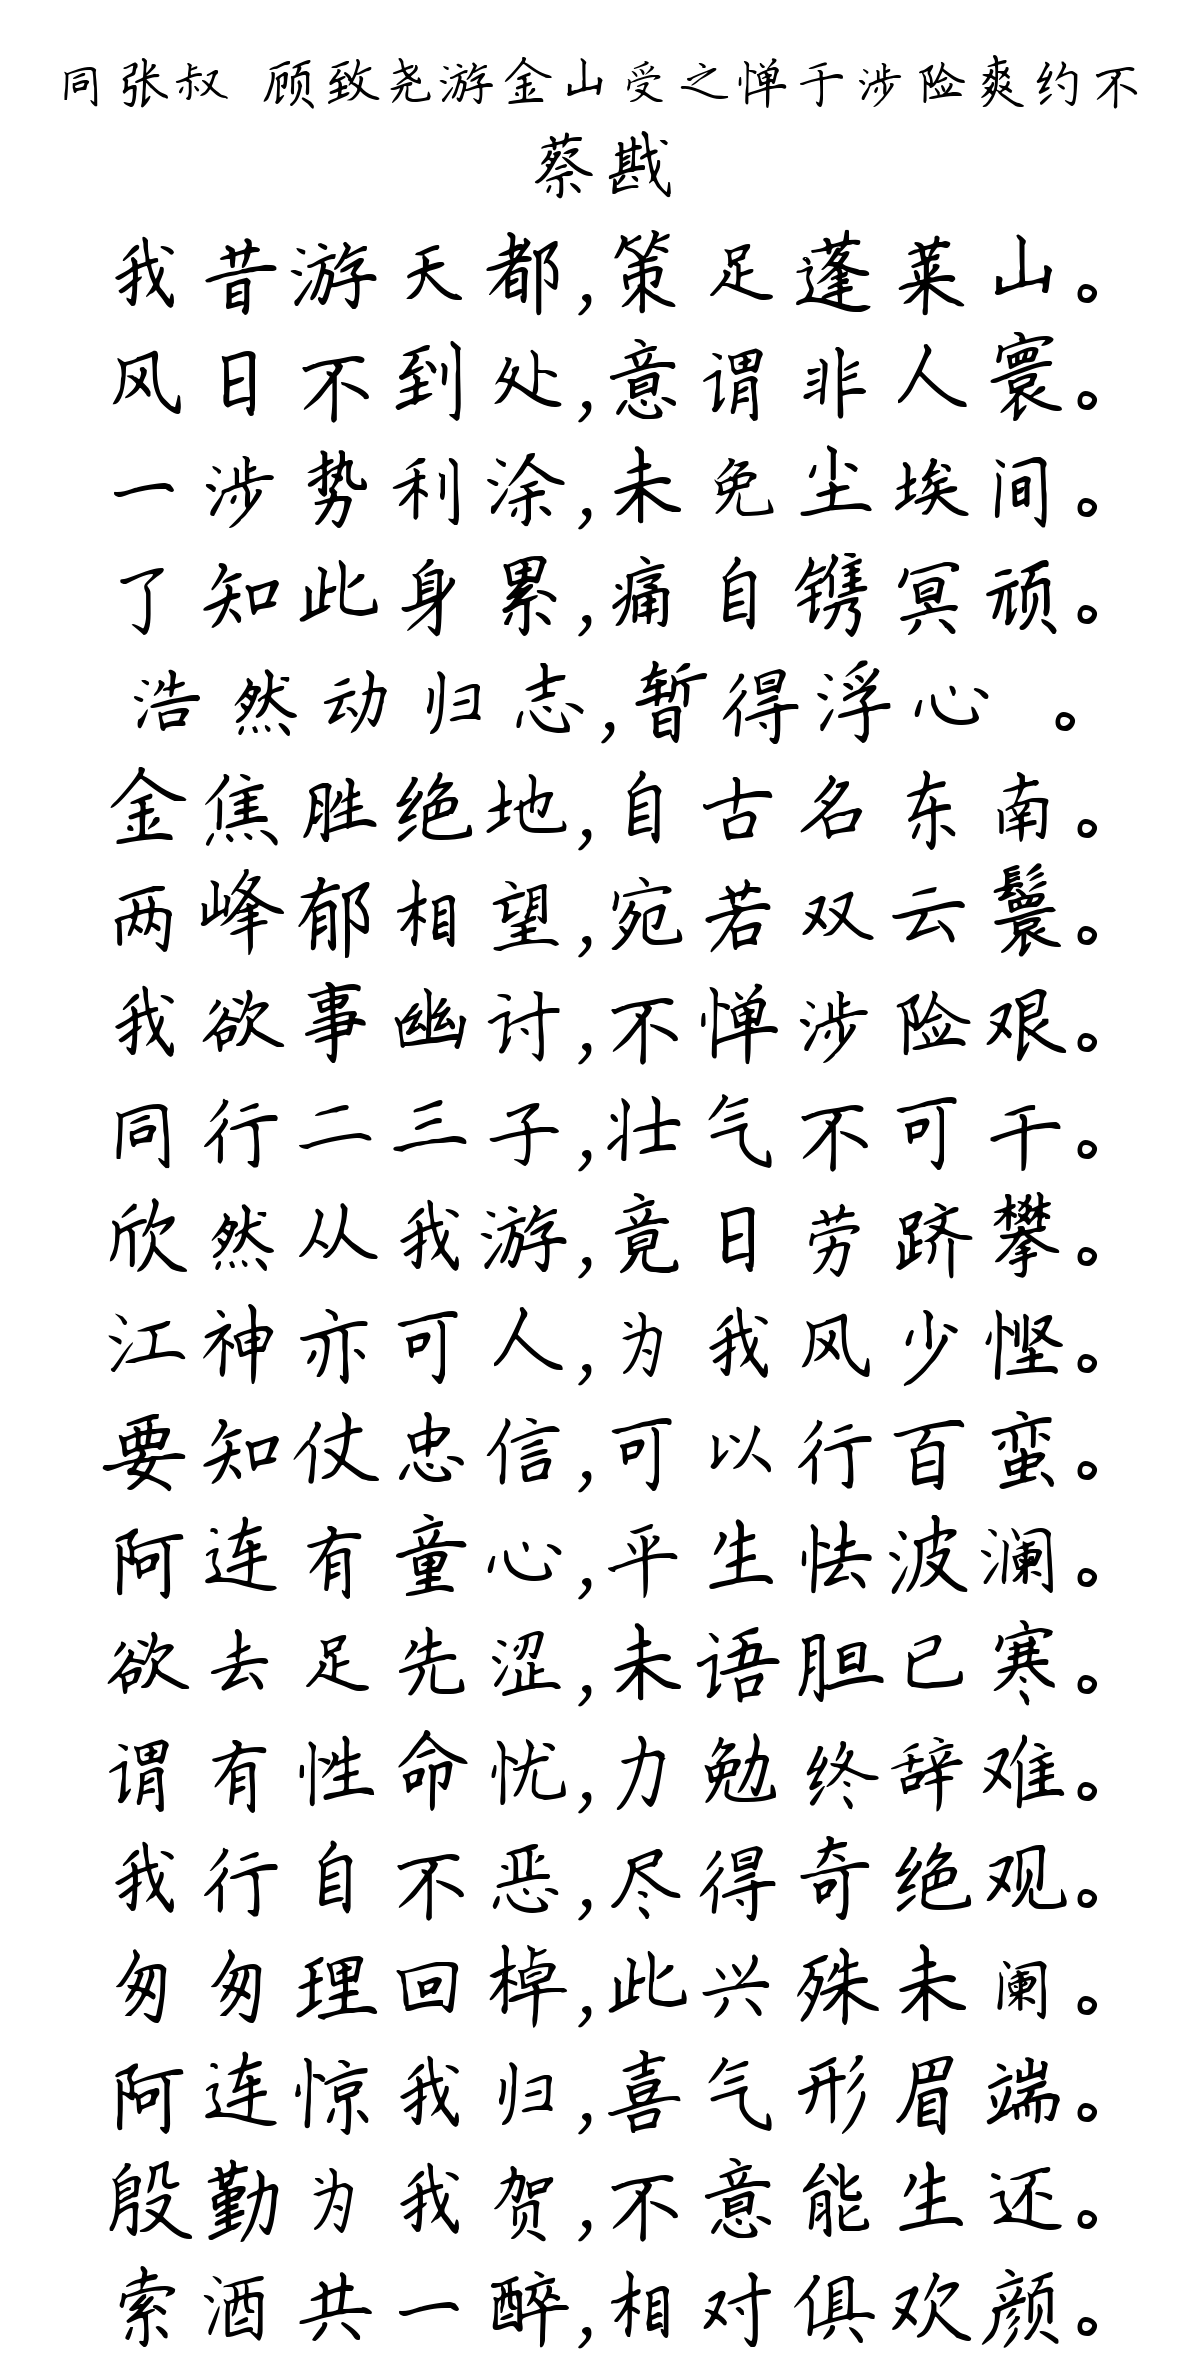 同张叔 顾致尧游金山受之惮于涉险爽约不
蔡戡
我昔游天都,策足蓬莱山。
风日不到处,意谓非人寰。
一涉势利涂,未免尘埃间。
了知此身累,痛自镌冥顽。
浩然动归志,暂得浮心 。
金焦胜绝地,自古名东南。
两峰郁相望,宛若双云鬟。
我欲事幽讨,不惮涉险艰。
同行二三子,壮气不可干。
欣然从我游,竟日劳跻攀。
江神亦可人,为我风少悭。
要知仗忠信,可以行百蛮。
阿连有童心,平生怯波澜。
欲去足先涩,未语胆已寒。
谓有性命忧,力勉终辞难。
我行自不恶,尽得奇绝观。
匆匆理回棹,此兴殊未阑。
阿连惊我归,喜气形眉端。
殷勤为我贺,不意能生还。
索酒共一醉,相对俱欢颜。